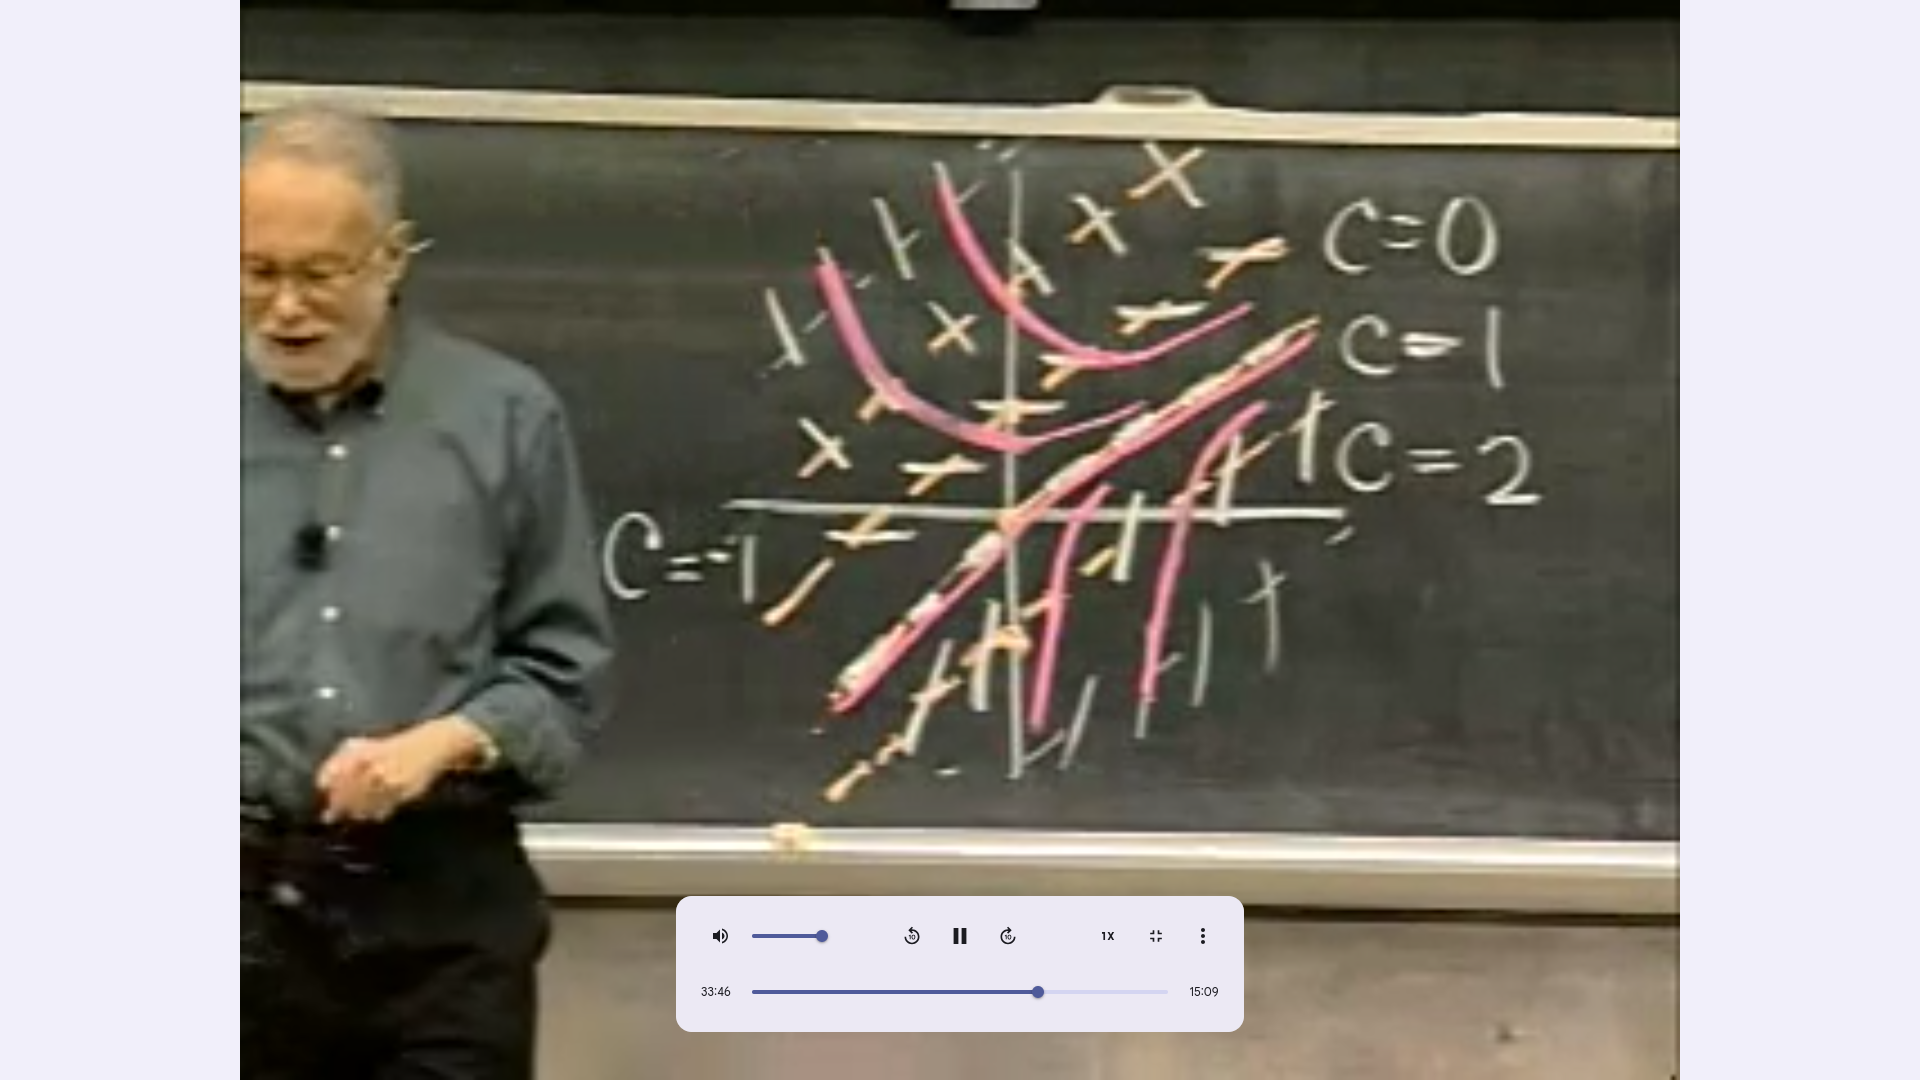 C=0
C=1
C=2
C=-1
10
10
1X
33:46
15:09